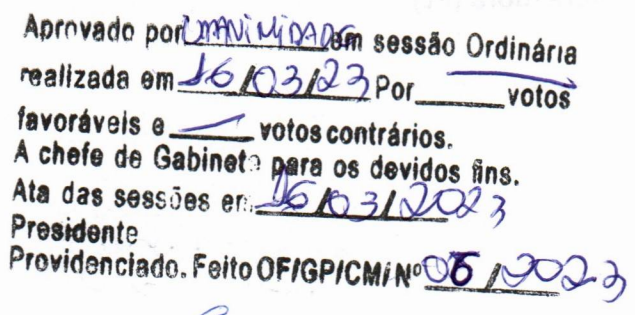 Aprovado por UNANIMIDADE em sessão Ordinária
realizada em 16/03/23 Por ______ votos
favoráveis e ______ votos contrários.
A chefe de Gabinete para os devidos fins.
Ata das sessões em 16/03/2023
Presidente
Providenciado. Feito OF/GP/CM/ Nº 06/2023